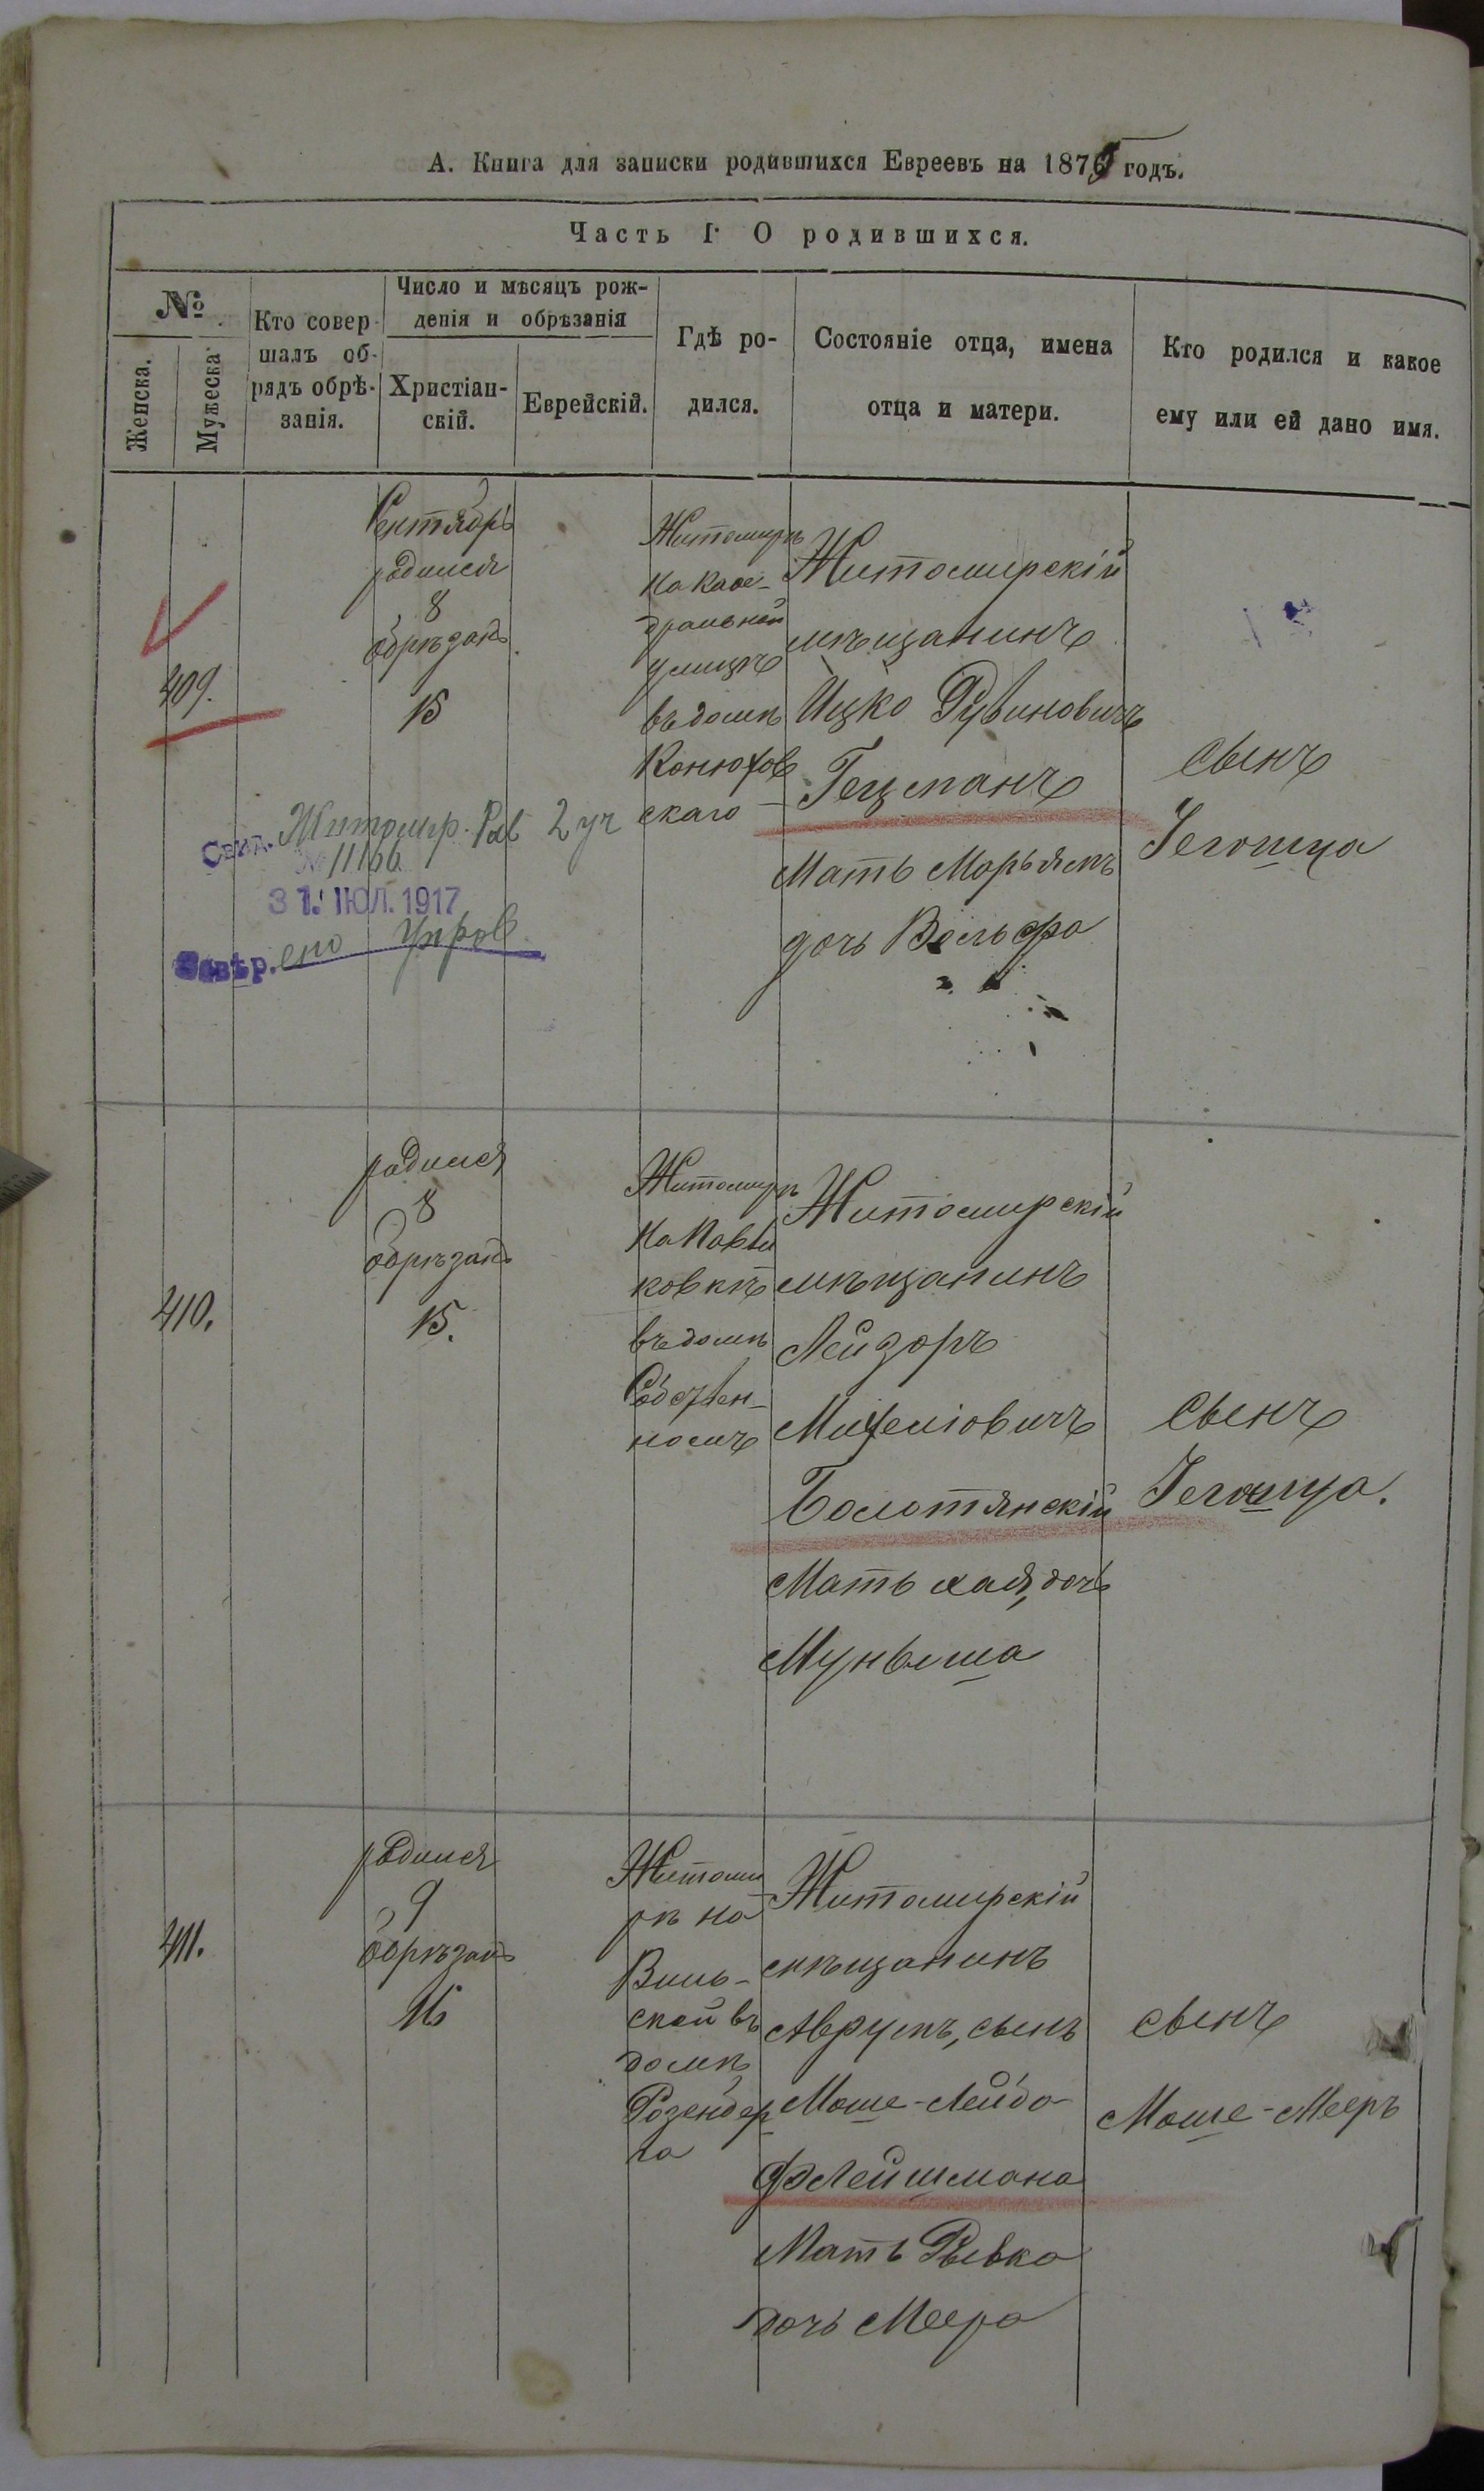 А. Книга для записки родившихся Евреевъ на 1875 годъ.
Часть I О родившихся.
№
Женска.
Мужеска
Кто совер-
шалъ об-
рядъ обрѣ-
занія.
Число и мѣсяцъ рож-
денія и обрѣзанія
Христіан-
скій.
Еврейскій.
Гдѣ ро-
дился.
Состояніе отца, имена
отца и матери.
Кто родился и какое
ему или ей дано имя.
409.
Сентябрь
родился
8
обрѣзанъ
15
Житомирѣ
на Каѳе-
дральной
улицѣ
въ домѣ
Конюхов
скаго
Житомирскій
мѣщанинъ
Ицко Рувиновичъ
Гецманъ
Мать Марьямъ
дочь Вольфа
сынъ
Іегошуа
Свид. Житомир. Рав 2 уч
№ 11166
31. ІЮЛ. 1917
410.
родился
8
обрѣзанъ
15.
Житомирѣ
на Павли
ковкѣ
въ домѣ
Собствен-
номъ
Житомирскій
мѣщанинъ
Лейзоръ
Михелiовичъ
Болотянскій
Мать Хая, дочь
Муныша
Сынъ
Іегошуа.
411.
родился
9
обрѣзанъ
16
Житоми
рѣ на
Виль-
ской въ
домѣ
Розенбер
га
Житомирскій
мѣщанинъ
Аврумъ, сынъ
Моше-Лейба
Флейшмана
Мать Рывка
дочь Меера
сынъ
Моше-Мееръ